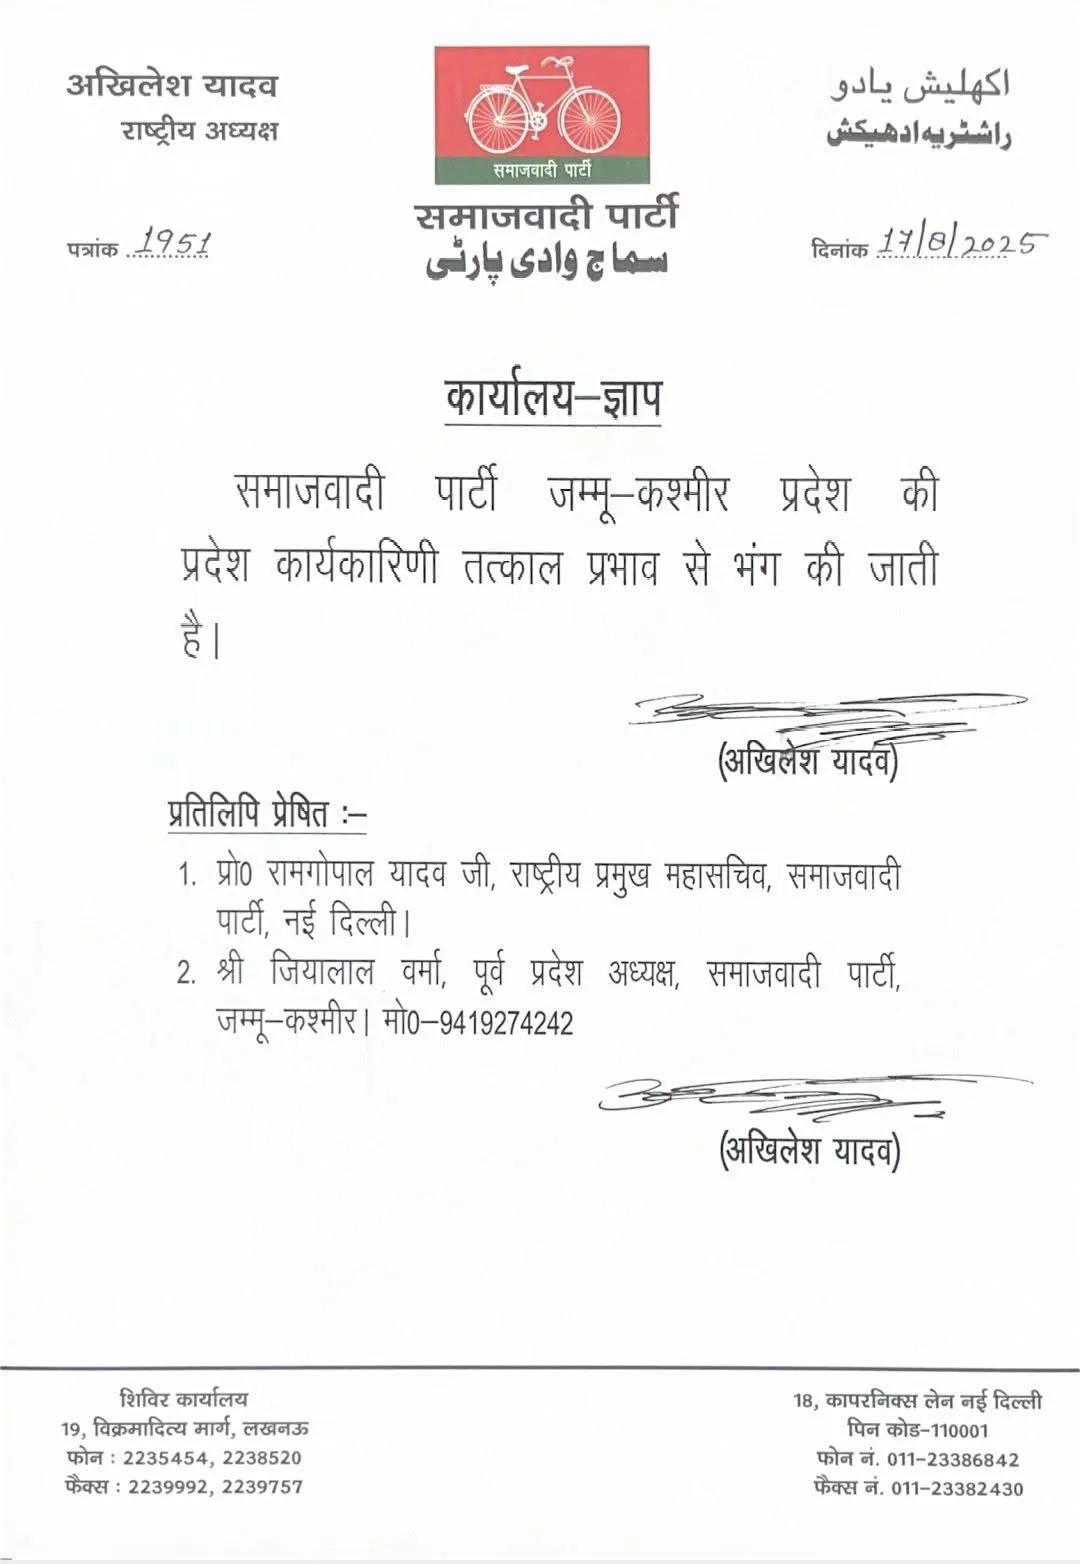 अखिलेश यादव
राष्ट्रीय अध्यक्ष
समाजवादी पार्टी
समाजवादी पार्टी
سماج وادی پارٹی
اکھلیش یادو
راشٹریہ ادھیکش
पत्रांक 1951
दिनांक 17/8/2025
कार्यालय–ज्ञाप
समाजवादी पार्टी जम्मू–कश्मीर प्रदेश की
प्रदेश कार्यकारिणी तत्काल प्रभाव से भंग की जाती
है।
(अखिलेश यादव)
प्रतिलिपि प्रेषित :–
1. प्रो0 रामगोपाल यादव जी, राष्ट्रीय प्रमुख महासचिव, समाजवादी
पार्टी, नई दिल्ली।
2. श्री जियालाल वर्मा, पूर्व प्रदेश अध्यक्ष, समाजवादी पार्टी,
जम्मू–कश्मीर। मो0–9419274242
(अखिलेश यादव)
शिविर कार्यालय
19, विक्रमादित्य मार्ग, लखनऊ
फोन : 2235454, 2238520
फैक्स : 2239992, 2239757
18, कापरनिक्स लेन नई दिल्ली
पिन कोड–110001
फोन नं. 011–23386842
फैक्स नं. 011–23382430